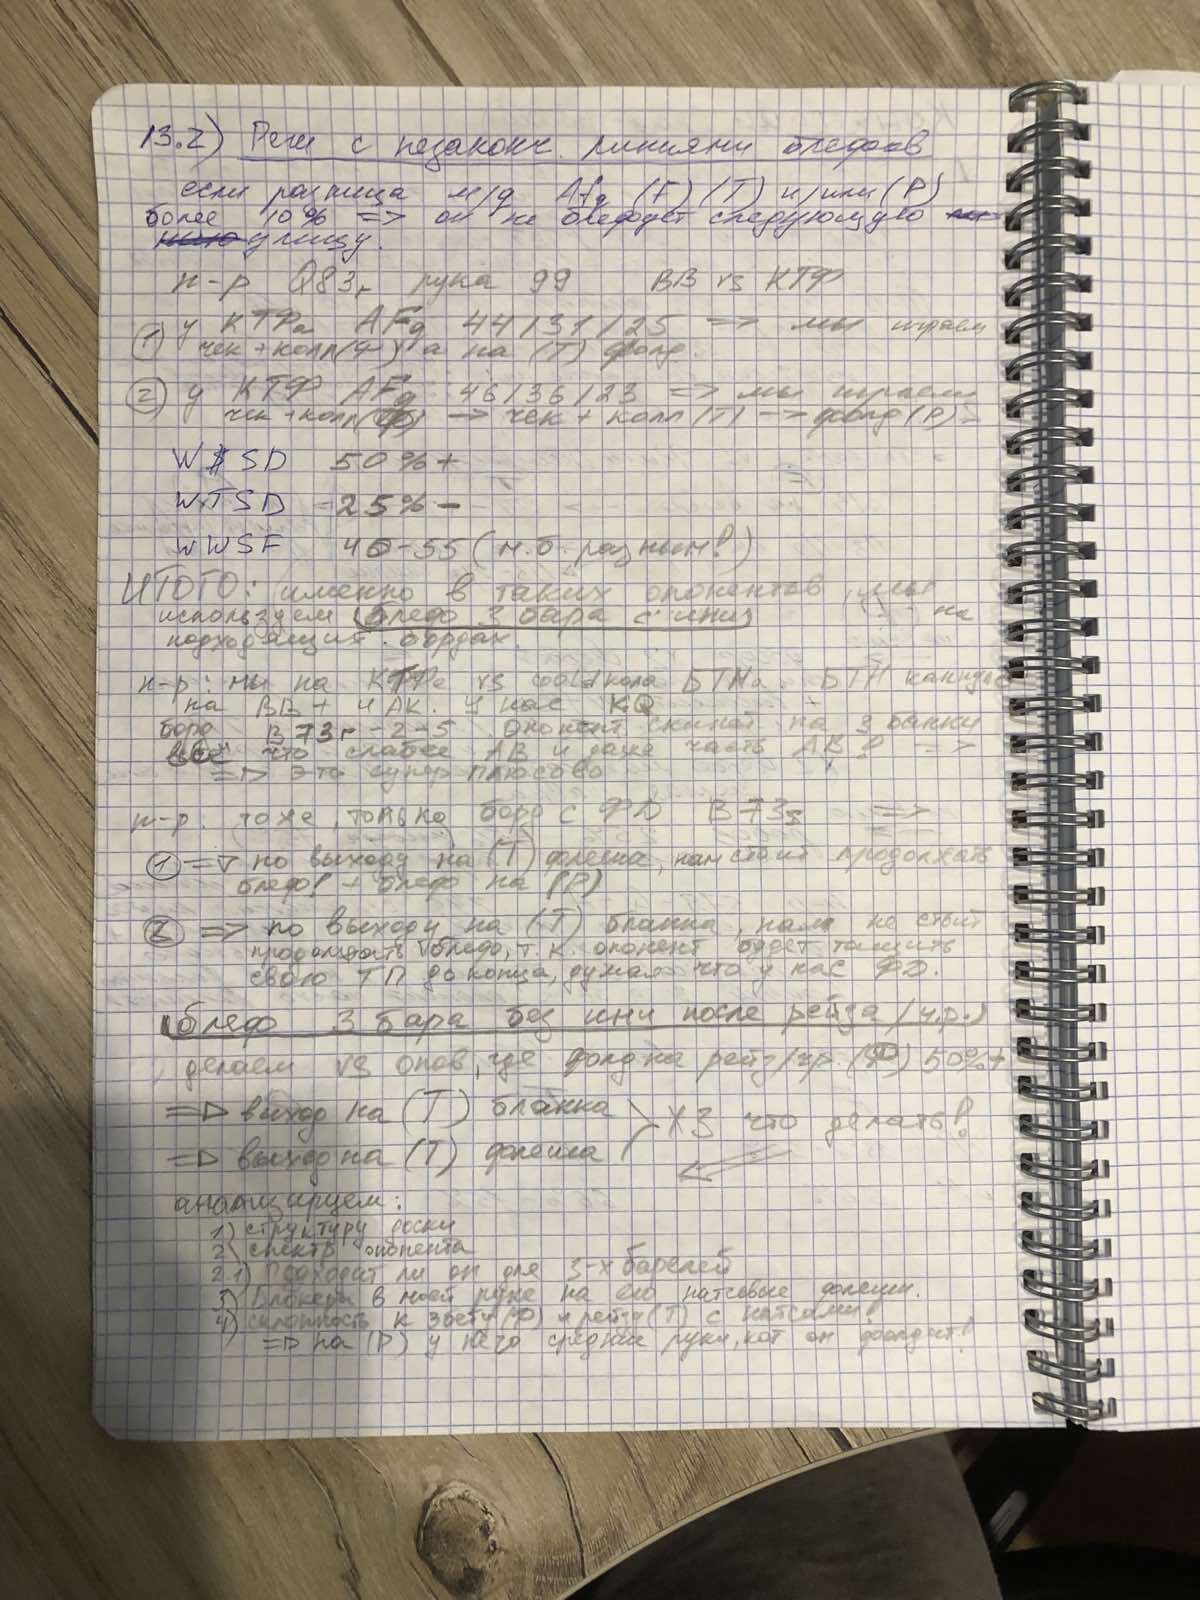 13.2) Реги с незаконч. линиями блефов
если разница м/д AFq (F) (T) и/или (P)
более 10% => он не блефует следующую
улицу.
н-р Q83r рука 99 BB vs КТФ
① у КТФа AFq 44/31/25 => мы играем
чек+колл(Ф) а на (T) фолд.
② у КТФ AFq 46/36/23 => мы играем
чек+колл(Ф) -> чек + колл (T) -> фолд (P)
W$SD 50%+
WTSD 25%-
WWSF 40-55 (м.б. разным!)
ИТОГО: именно в таких опонентов, мы
используем блеф 3 бара с на
подходящих бордах.
н-р: мы на КТФе vs coldкола БТНа. БТН
на BB+ и АК. У нас KQ
борд В73r -2-5 Опонент скинет на 3 банки
всё что слабее АВ и даже часть АВ! =>
=> это супер плюсово
н-р. тоже, только борд с ФД В73s =>
① => по выходу на (T) флеша, нам стоит продолжать
блеф! + блеф на (P)
② => по выходу на (T) бланка, нам не стоит
продолжать блеф, т.к. опонент будет тащить
свою ТП до конца, думая что у нас ФД.
блеф 3 бара без ини после рейза/ч.р.)
делаем vs опов, где фолд на рейз/чр. (Ф) 50%+
=> выход на (T) бланка
=> выход на (T) флеша
ХЗ что делать!
анализируем:
1) структуру доски
2) спектр опонента
2.1) Подходит ли он для 3-х барелей
3) Блокеры в моей руке на его натсовые флеши.
4) склонность к 3бету (Ф) и рейзу (T) с натсами!
=> на (P) у него средние руки, кот он фолдит!